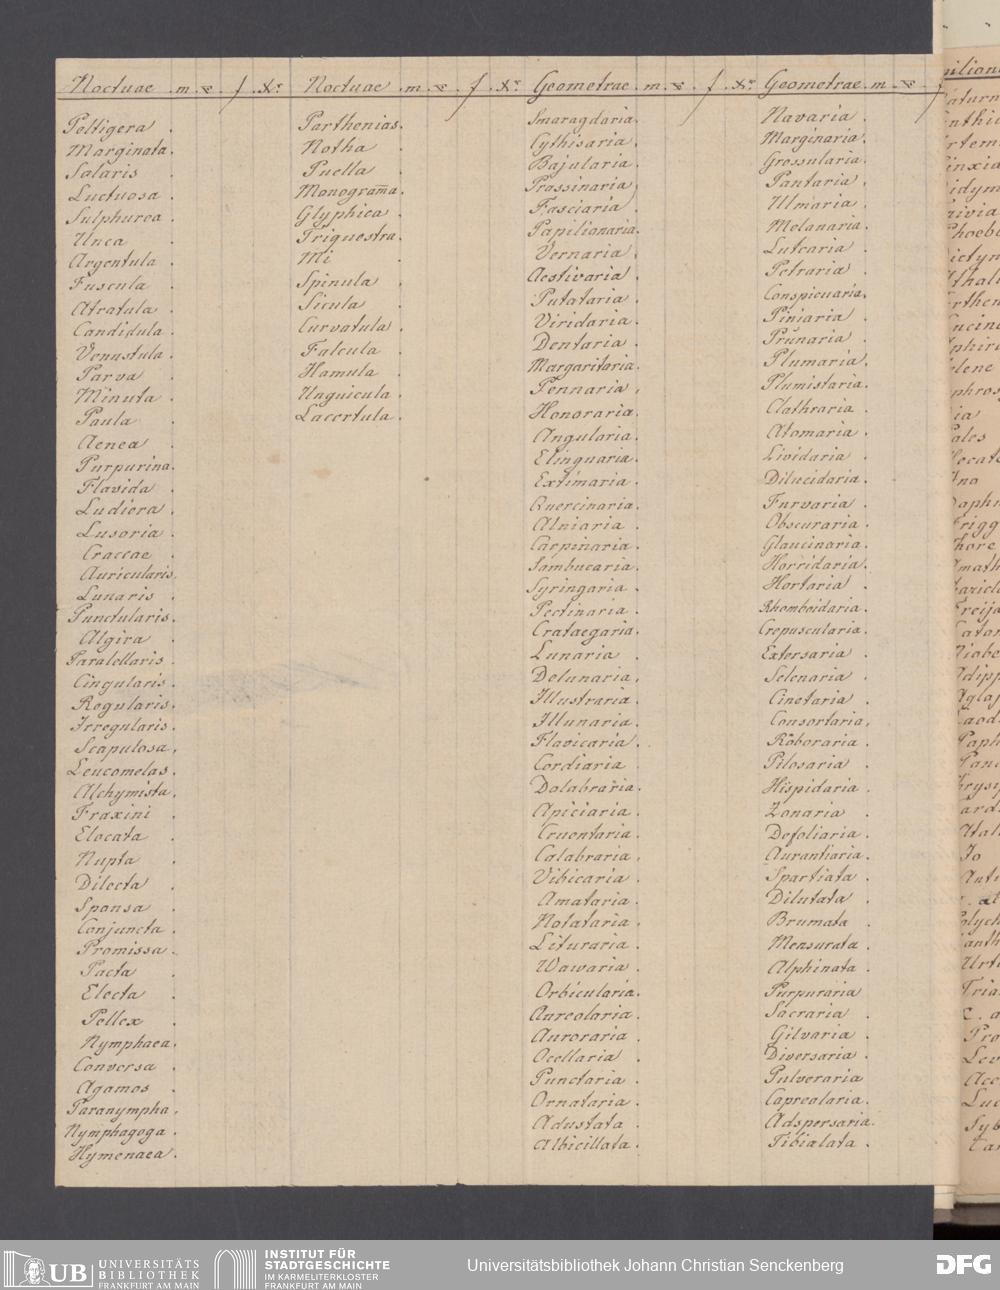 Noctuae . m . xr . f . xr.
Peltigera .
Marginata .
Solaris .
Luctuosa .
Sulphurea .
Unca .
Argentula .
Fuscula .
Atratula .
Candidula .
Venustula .
Parva .
Minuta .
Paula .
Aenea .
Purpurina .
Flavida .
Ludicra .
Lusoria .
Craccae .
Auricularis .
Lunaris .
Punctularis .
Algira .
Paralellaris .
Cingularis .
Regularis .
Irregularis .
Scapulosa .
Leucomelas .
Alchymista .
Fraxini .
Elocata .
Nupta .
Dilecta .
Sponsa .
Conjuncta .
Promissa .
Pacta .
Electa .
Pellex .
Nymphaea .
Conversa .
Agamos .
Paranympha .
Nymphagoga .
Hymenaea .
Noctuae . m . xr . f . xr.
Parthenias .
Notha .
Puella .
Monogram̄a .
Glyphica .
Triquestra .
Mi .
Spinula .
Sicula .
Curvatula .
Falcula .
Hamula .
Unguicula .
Lacertula .
Geometrae . m . xr . f . xr.
Smaragdaria .
Cythisaria .
Bajularia .
Prassinaria .
Fasciaria .
Papilionaria .
Vernaria .
Aestivaria .
Putataria .
Viridaria .
Dentaria .
Margaritaria .
Pennaria .
Honoraria .
Angularia .
Elinguaria .
Extimaria .
Quercinaria .
Alniaria .
Carpinaria .
Sambucaria .
Syringaria .
Pectinaria .
Crataegaria .
Lunaria .
Delunaria .
Illustraria .
Illunaria .
Flavicaria .
Cordiaria .
Dolabraria .
Apiciaria .
Cruentaria .
Calabraria .
Vibicaria .
Amataria .
Notataria .
Lituraria .
Wawaria .
Orbicularia .
Aureolaria .
Auroraria .
Ocellaria .
Punctaria .
Ornataria .
Adustata .
Albicillata .
Geometrae . m . xr . f
Navaria .
Marginaria .
Grossularia .
Pantaria .
Ulmaria .
Melanaria .
Lutearia .
Petraria .
Conspicuaria .
Piniaria .
Prunaria .
Plumaria .
Plumistaria .
Clathraria .
Atomaria .
Lividaria .
Dilucidaria .
Furvaria .
Obscuraria .
Glaucinaria .
Horridaria .
Hortaria .
Rhomboidaria .
Crepuscularia .
Extersaria .
Selenaria .
Cinctaria .
Consortaria .
Roboraria .
Pilosaria .
Hispidaria .
Zonaria .
Defoliaria .
Aurantiaria .
Spartiata .
Dilutata .
Brumata .
Mensurata .
Alphinata .
Purpuraria
Sacraria .
Gilvaria .
Diversaria .
Pulveraria
Capreolaria .
Adspersaria .
Tibialata .
UB UNIVERSITÄTS
BIBLIOTHEK
FRANKFURT AM MAIN
INSTITUT FÜR
STADTGESCHICHTE
IM KARMELITERKLOSTER
FRANKFURT AM MAIN
Universitätsbibliothek Johann Christian Senckenberg
DFG